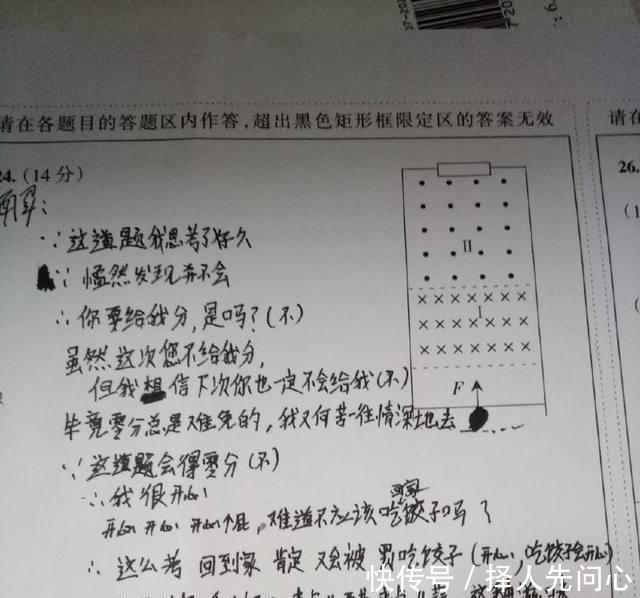 07-202
请在各题目的答题区内作答,超出黑色矩形框限定区的答案无效
请在
24.(14分)
26.
(1
解:
∵这道题我思考了好久
∵ 恍然发现并不会
∴你要给我分,是吗?(不)
虽然这次您不给我分,
但我想信下次你也一定不会给我(不)
毕竟零分总是难免的,我又何苦一往情深地去
∵这道题会得零分(不)
∴我很开心
开心 开心 开心个屁,难道不应该回家吃饺子吗了
∴ 这么考 回到家 肯定 又会被 罚吃饺子(开心,吃饺子会开心)
II
× × × × × × ×
I
× × × × × × ×
× × × × × × ×
F
快传号/择人先问心